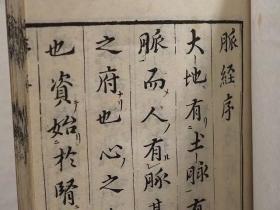 脈経序
大地有土脈有
脈而人有脈其
之府也心之
也資始於腎